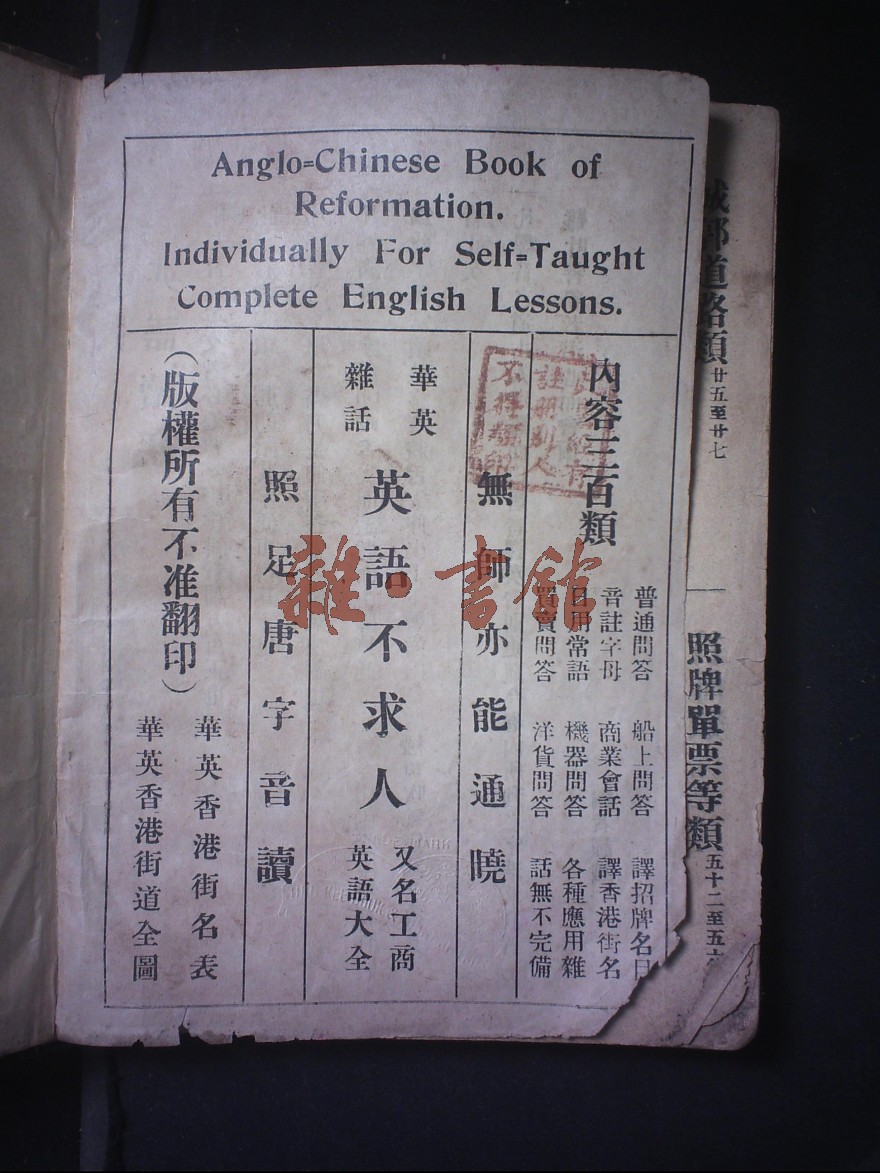 Anglo=Chinese Book of
Reformation.
Individually For Self=Taught
Complete English Lessons.
內容三百類
普通問答 船上問答 譯招牌名目
音註字母 商業會話 譯香港街名
日用常語 機器問答 各種應用雜
買賣問答 洋貨問答 話無不完備
無師亦能通曉
華英
雜話
英語不求人
又名工商
英語大全
照足唐字音讀
(版權所有不准翻印)
華英香港街名表
華英香港街道全圖
城郭道路類 廿五至廿七
照牌單票等類 五十二至五六
註冊別人
不得翻印
雜·書館